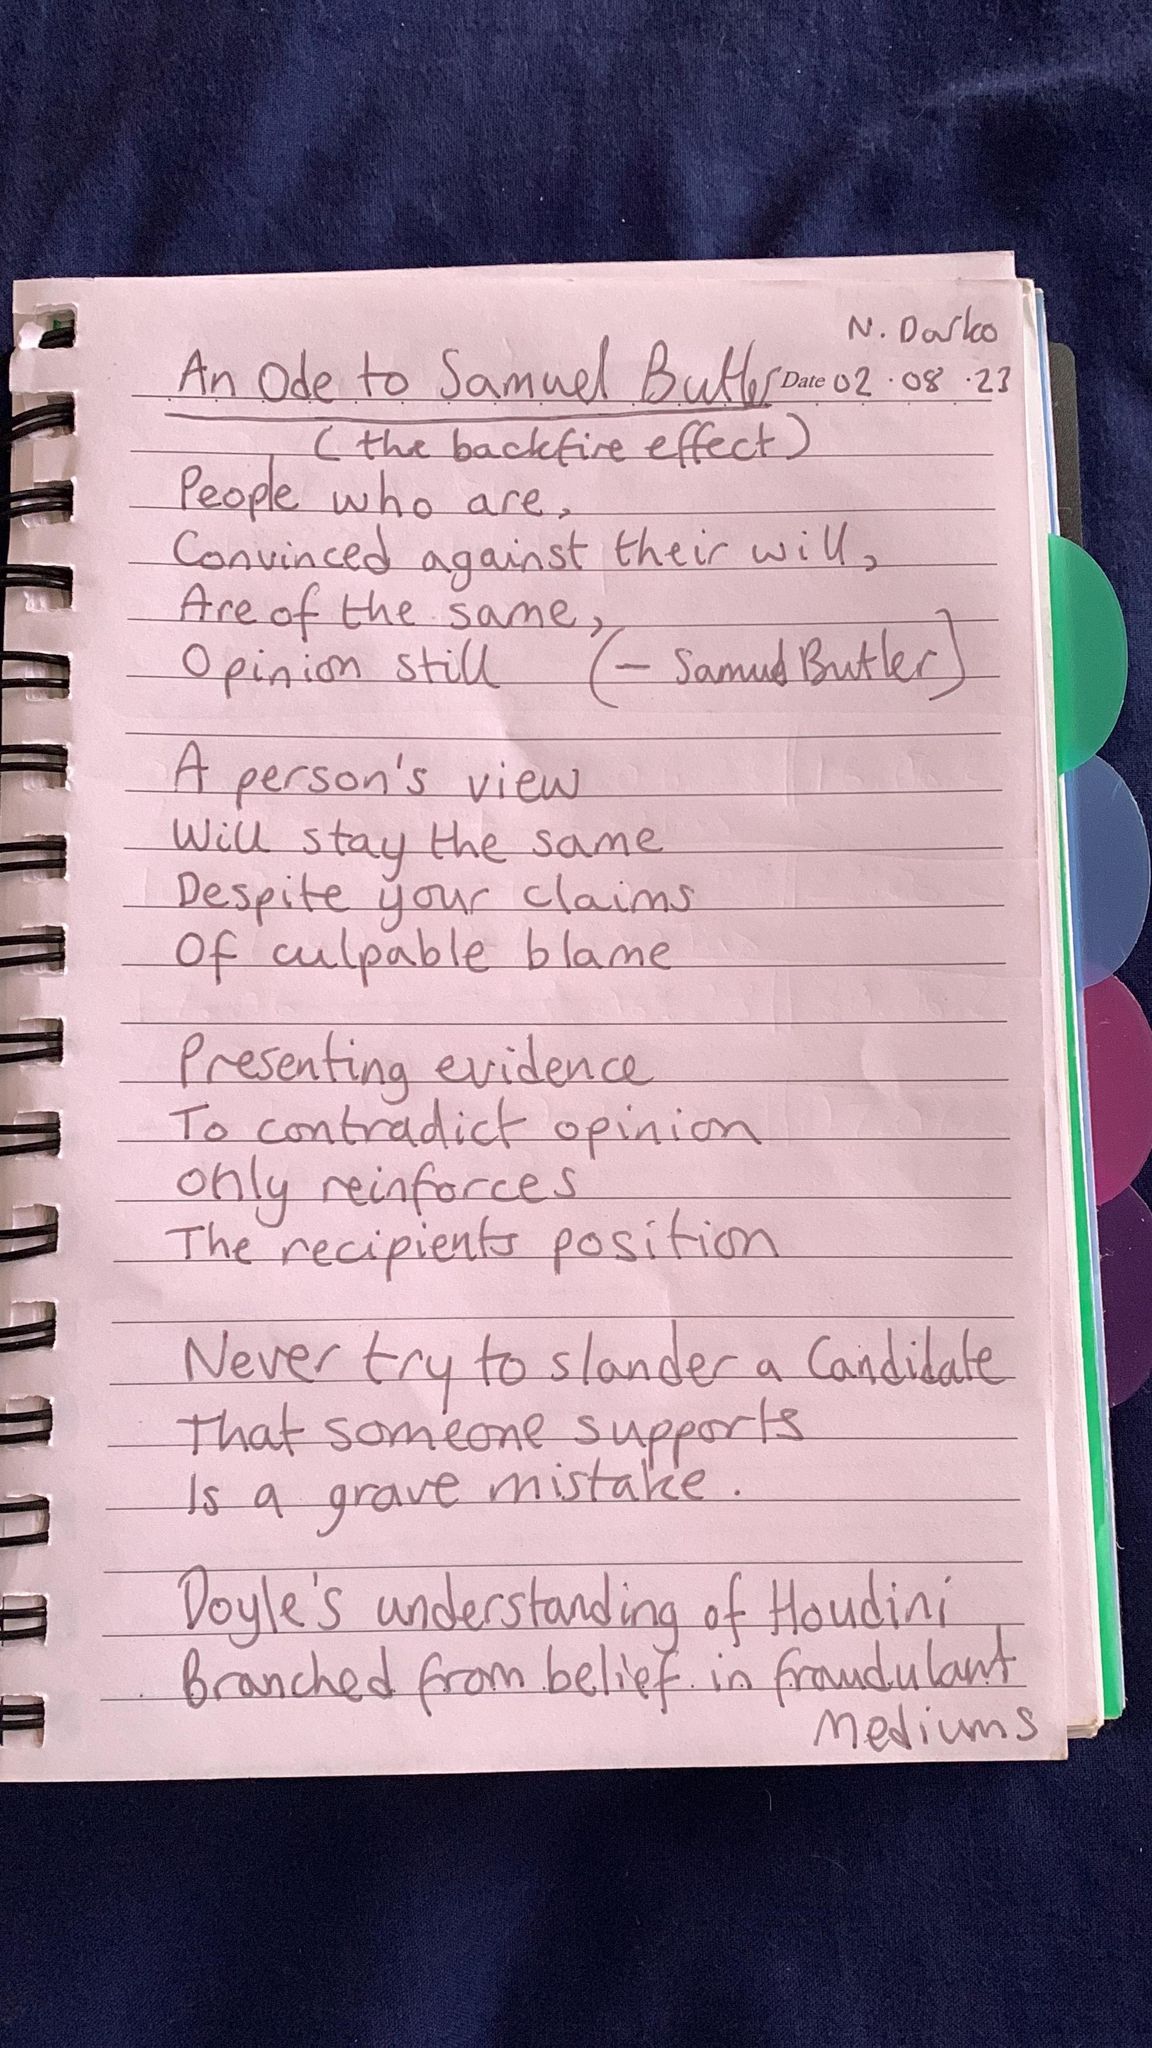 N. Darko
An Ode to Samuel Butler Date 02.08.23
(the backfire effect)
People who are,
Convinced against their will,
Are of the same,
Opinion still (- Samuel Butler)
A person's view
Will stay the same
Despite your claims
Of culpable blame
Presenting evidence
To contradict opinion
Only reinforces
The recipients position
Never try to slander a Candidate
That someone supports
Is a grave mistake.
Doyle's understanding of Houdini
Branched from belief in fraudulant
Mediums